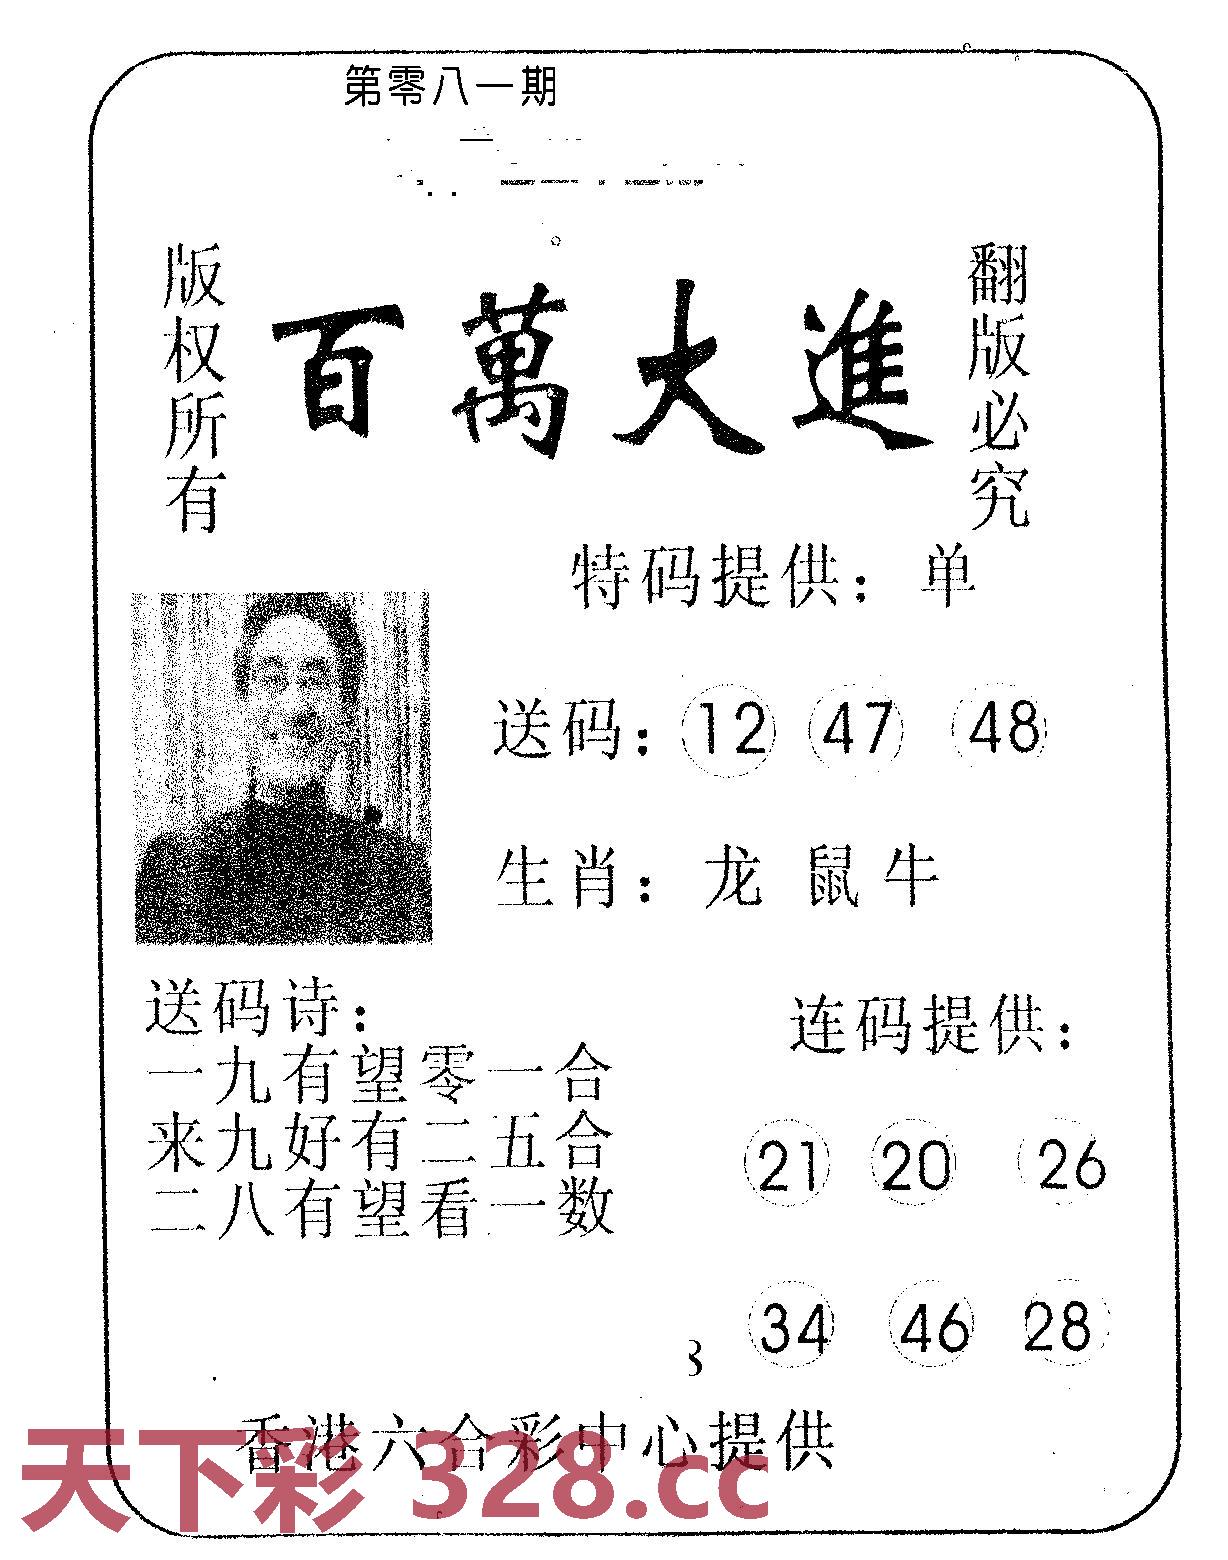 第零八一期
版权所有
百萬大進
翻版必究
特码提供：单
送码：12 47 48
生肖：龙 鼠 牛
送码诗：
一九有望零一合
来九好有二五合
二八有望看一数
连码提供：
21 20 26
34 46 28
香港六合彩中心提供
天下彩 328.cc